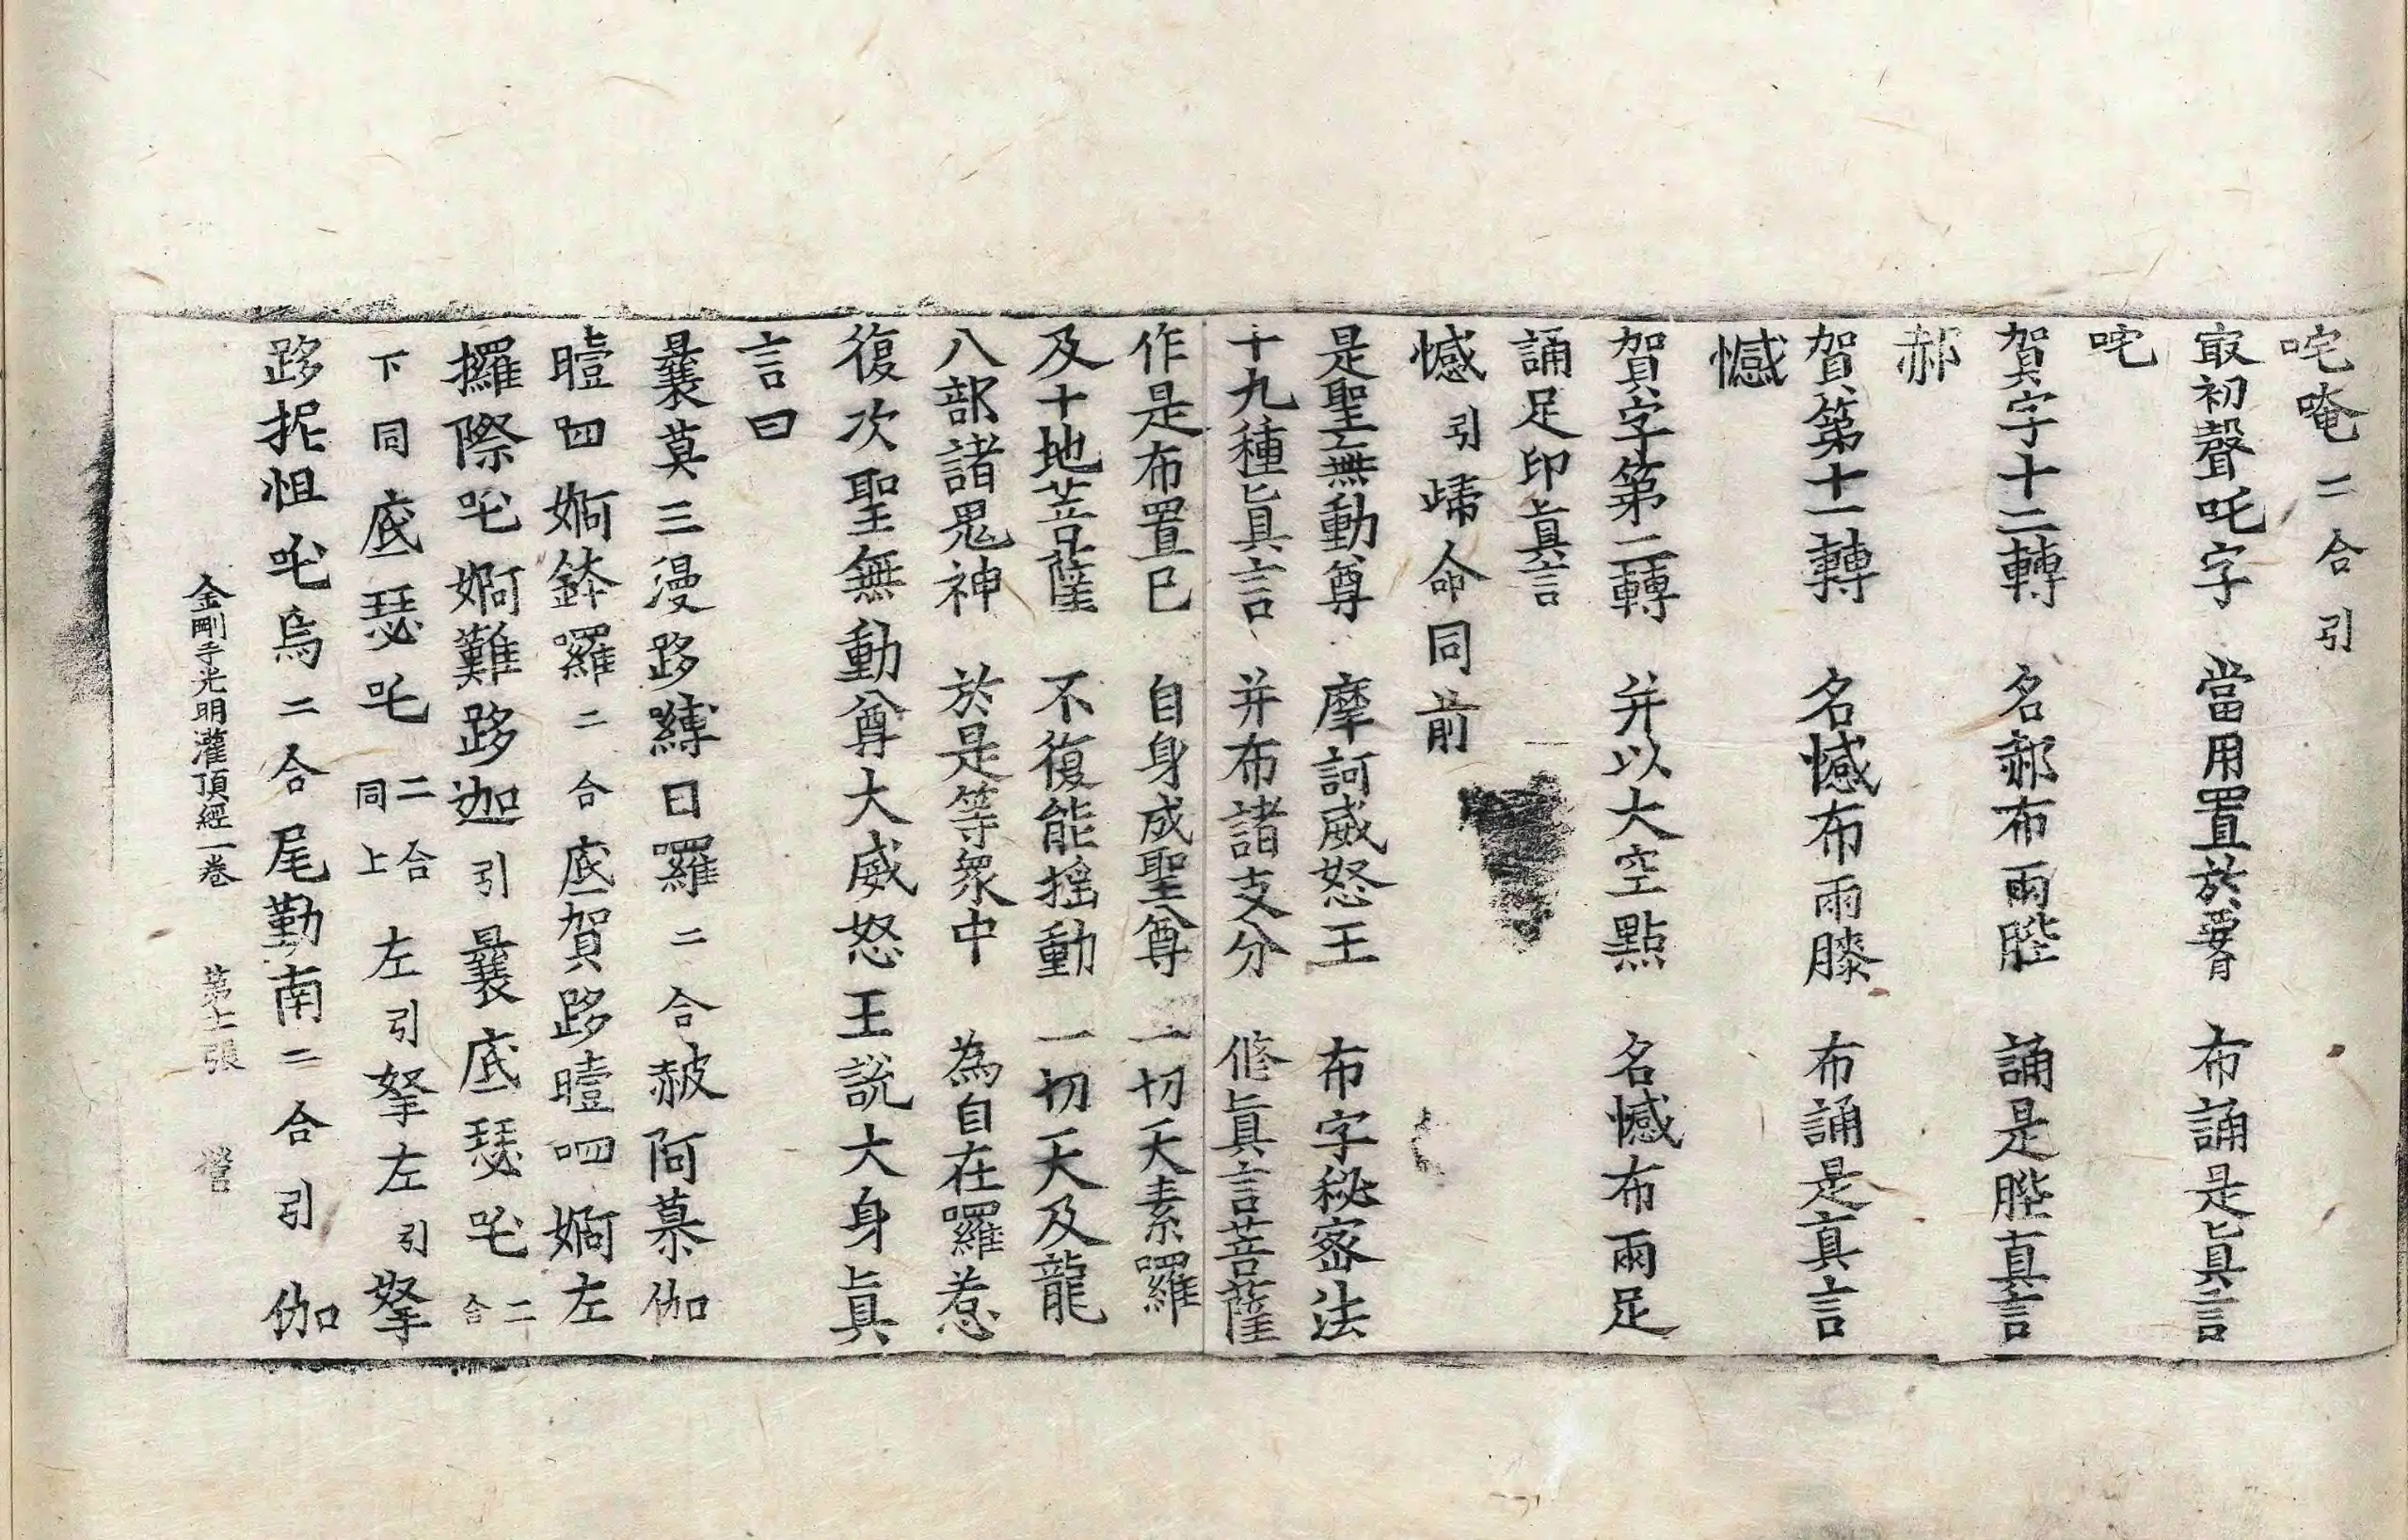 咤唵二合引
㝡初聲吒字　當用置於𦝫　布誦是眞言
咤
賀字十二轉　名郝布兩䏶　誦是䏶真言
郝
賀第十一轉　名憾布兩膝　布誦是真言
憾
賀字第二轉　并以大空點　名憾布兩足
誦足印眞言
憾引歸命同前
是聖無動尊　摩訶威怒王　布字秘密法
十九種眞言　并布諸支分　修眞言菩薩
作是布置已　自身成聖尊　一切天素囉
及十地菩薩　不復能搖動　一切天及龍
八部諸鬼神　於是等衆中　為自在囉惹
復次聖無動尊大威怒王說大身眞
言曰
曩莫三漫跢縛曰羅二合赧阿慕伽
曀呬婀鉢囉二合底賀跢曀呬婀左
攞際吒婀難跢迦引曩底瑟吒二合
下同底瑟吒二合同上左引拏左引拏
跢抳怛吒烏二合尾勤南二合引伽
金剛手光明灌頂經一卷　第七張　營